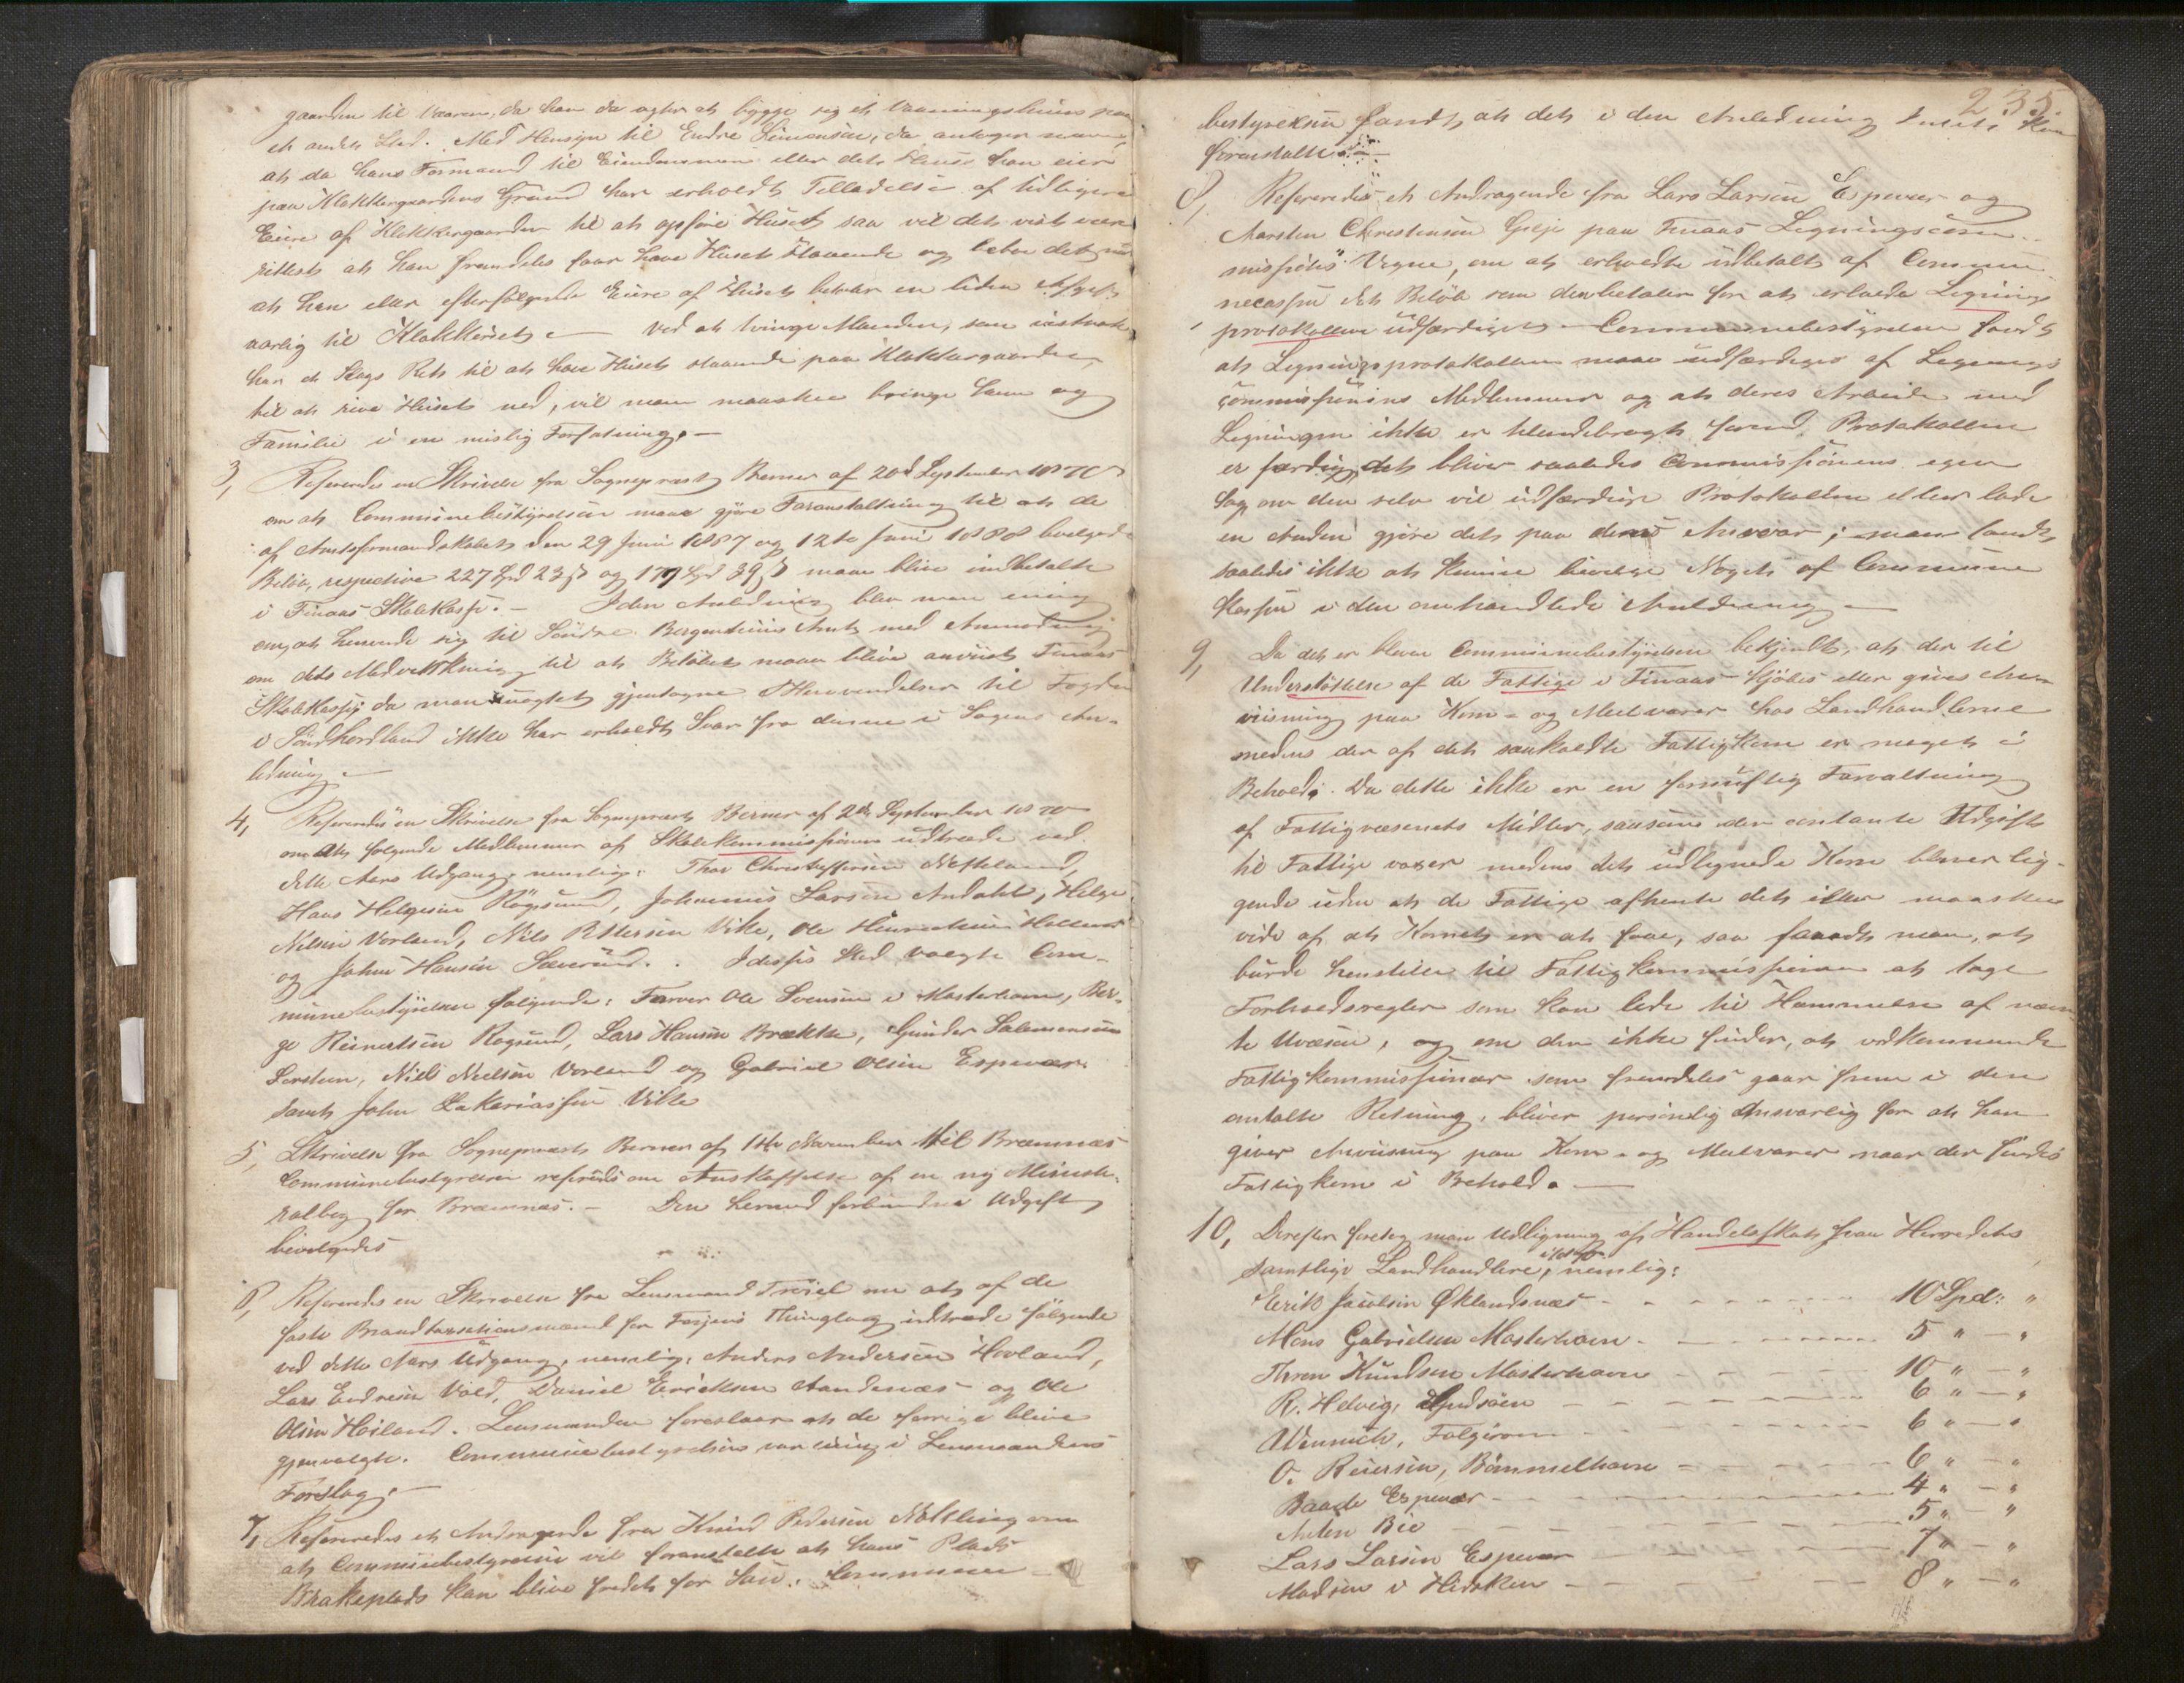 gaarden til Vaaren, da han da agter at bygge sig et Vaaningshuus paa
et andet Sted. Med Hensyn til Endre Simensen, da antager man,
at da hans Formand til Eiendommen eller det Huus han eier
paa Klokkergaardens Grund har erholdt Tilladelse af tidligere
Eiere af Klokkergaarden til at opføre Huset saa vil det vist være
rettest at han fremdeles faar have Huset staaende og lader det
at han eller efterfølgende Eiere af Huset betaler en liden Afgift
aarlig til Klokkeriet. — Ved at tvinge Manden, som
har et Slags Ret til at have Huset staaende paa Klokkergaarden,
til at rive Huset ned, vil man maaskee bringe ham og
Familie i en mislig Forfatning. —
3, Refereredes en Skrivelse fra Sogneprest Berner af 20de September 1870
om at Communebestyrelsen maa gjøre Foranstaltning til at de
af Amtsformandskabet den 29 Juni 1867 og 12te Juni 1868 bevilgede
Beløb, respective 227 Spd 23 ß og 179 Spd 39 ß maa blive indbetalte
i Finaas Skolekasse. — I den Anledning blev man enig
om, at henvende sig til Søndre Bergenhuus Amt med Anmodning
om dets Medvirkning til at Beløbet maa blive anviist Finaas
Skolekasse, da man uagtet gjentagne Henvendelser til Fogden
i Søndhordland ikke har erholdt Svar fra denne i Sagens An-
ledning. —
4, Refereredes en Skrivelse fra Sogneprest Berner af 2den September 1870
om at følgende Medlemmer af Skolekommissionen udtræde ved
dette Aars Udgang, nemlig: Thor Christoffersen
Hans Helgesen Røgsund, Johannes Larsen Andahl, Helge
Nelsen Vorland, Nils Pettersen Vike, Ole Henriksen
og John Hansen Sæverud. I disses Sted valgte Com-
munebestyrelsen følgende: Farver Ole Svensen i Mosterhavn, Bør-
ge Reinertsen Røgsund, Lars Hansen Brække, Gunder Salomonsen
Serstein, Niels Nielsen Vorland og Gabriel Olsen Espevær
samt John Zakariassen Vike
5, Skrivelse fra Sogneprest Berner af 1ste November til Bremnæs
Communebestyrelse refereredes om Anskaffelse af en ny Ministe-
rialbog for Bremnæs. — Den herved forbundne Udgift
bevilgedes
6, Refereredes en Skrivelse fra Lensmand Troiel om at af de
faste Brandtaxationsmænd for Føiens Thinglag udtræde følgende
ved dette Aars Udgang, nemlig: Anders Andersen Hovland,
Lars Endresen Vold, Daniel Ericksen Aandenæs og Ole
Olsen Høiland. Lensmanden foreslaar at de forrige blive
gjenvalgte. Communebestyrelsen var enig i Lensmandens
Forslag. —
7, Refereredes et Andragende fra Knud Pedersen Nøttling om
at Communebestyrelsen vil foranstalte at hans Plads
Brakeplads kan blive fredet for Sau. Commune-
235.
bestyrelsen fandt, at det i den Anledning Intet kan
foranstalte. —
8, Refereredes et Andragende fra Lars Larsen Espevær og
Karsten Christensen Geije paa Finaas Ligningscom-
missions Vegne, om at erholdte udbetalt af Commu-
necassen det Beløb som den betaler for at erholde Lignings-
protokollen udfærdiget. — Communebestyrelsen fandt
at Ligningsprotokollen maa udfærdiges af Lignings-
commissionens Medlemmer og at deres Arbeide med
Ligningen ikke er tilendebragt førend Protokollen
er færdig, det bliver saaledes Commissionens egen
Sag om den selv vil udfærdige Protokollen eller lade
en Anden gjøre det paa dens Ansvar; man fandt
saaledes ikke at kunne bevilge Noget af Commune-
kassen i den omhandlede Anledning. —
9, Da det er bleven Communebestyrelsen bekjendt, at der til
Understøttelse af de Fattige i Finaas kjøbes eller gives An-
viisning paa Korn- og Meelvarer hos Landhandlerne
medens der af det saakaldte Fattigkorn er meget i
Behold. Da dette ikke er en fornuftig Forvaltning
af Fattigvæsenets Midler, saasom den contante Udgift
til Fattige voxer medens det udlignede Korn bliver lig-
gende uden at de Fattige afhente det eller maaskee
vide af at Kornet er at faae, saa fandt man, at
burde henstille til Fattigkommissionen at tage
Forholdsregler som kan lede til Hemmelse af næv-
te Uvæsen, og om den ikke finder, at vedkommende
Fattigkommissionær som fremdeles gaar frem i den
omtalte Retning, bliver personlig Ansvarlig for at han
giver Anviisning paa Korn- og Meelvarer naar der findes
Fattigkorn i Behold. —
10, Derefter foretog man Udligning af Handelsskat paa Herredets
samtlige Landhandlere, nemlig:
Eerik Jacobsen Øklandsnæs - - - 10 Spd: "
Mons Gabrielsen Mosterhavn - - - 5 " — "
Thron Knudsen Mosterhavn - - - 10 " — "
R. Helvig, - - - 6 " — "
Wennich, Folgerøen - - - 6 " — "
O. Reiersen, Bømmelhavn - - - 6 " — "
Baade Espevær - - - 4 " — "
Anten Bie - - - 5 " — "
Lars Larsen Espevær - - - 7 " — "
Madsen i Hidsken - - - 8 " — "